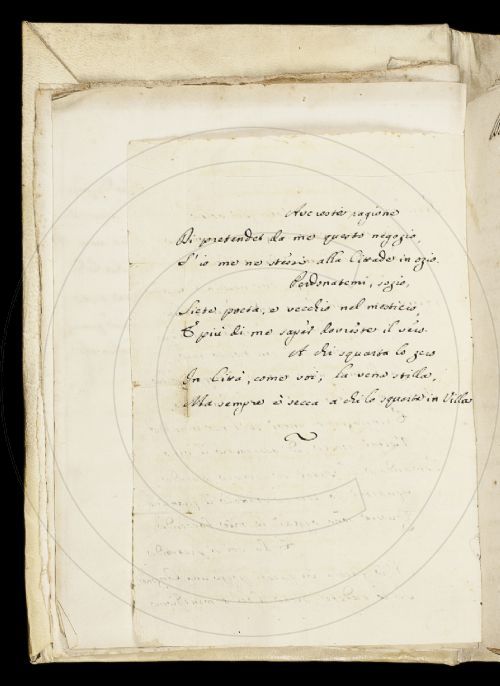 Avereste ragione
Di pretender da me questo negozio,
S'io me ne stessi alla Citade in ozio.
Perdonatemi, sozio,
Siete poeta, e vecchio nel mestiero,
E più di me saper dovreste il vero.
A chi squarta lo zero
In Città, come voi, la vena stilla,
Ma sempre è secca a chi lo squarta in Villa